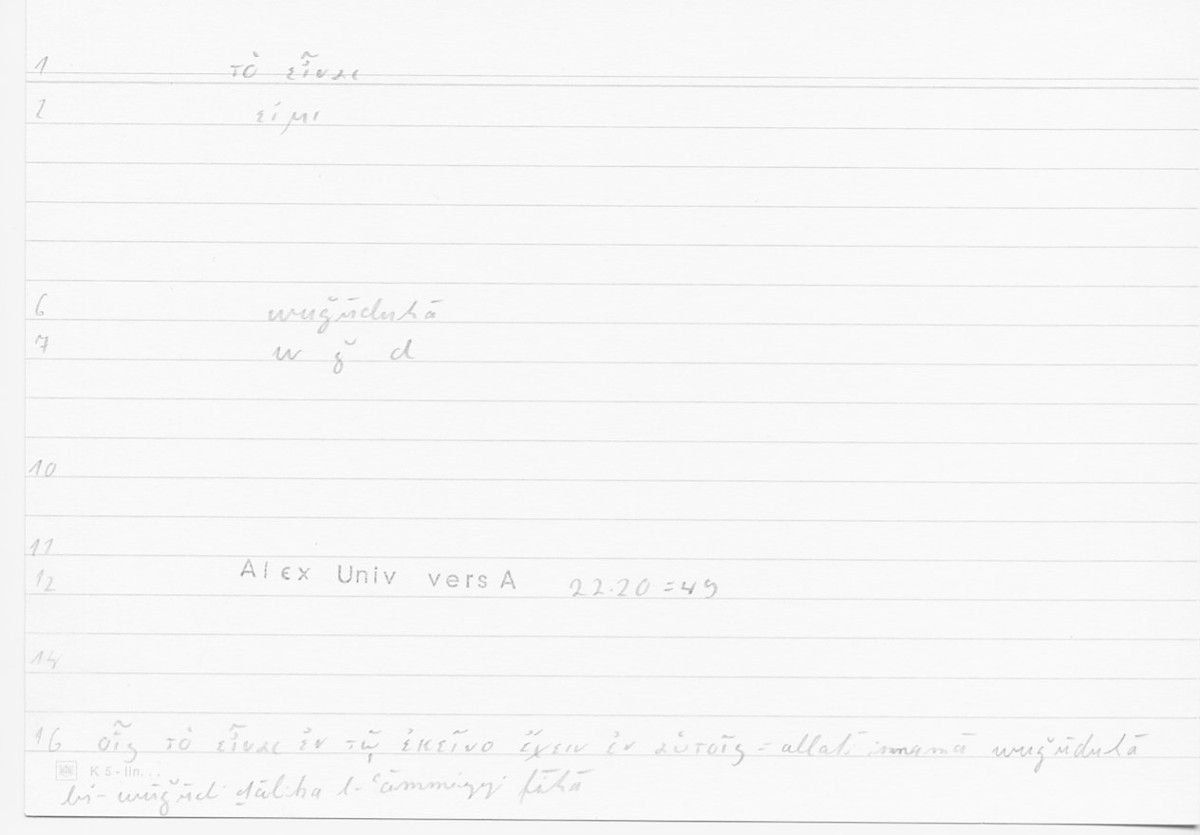 1 τὸ εἶναι
2 εἰμι
6 wuǧūduhā
7 w ǧ d
10
11
12 Alex Univ vers A 22.20 = 49
14
16 οἷς τὸ εἶναι ἐν τῷ ἐκεῖνο ἔχειν ἐν αὑτοῖς = allatī innamā wuǧūduhā
K 5 - lin.
bi-wuǧūdi ḏālika l-ʿāmmiyyi fīhā